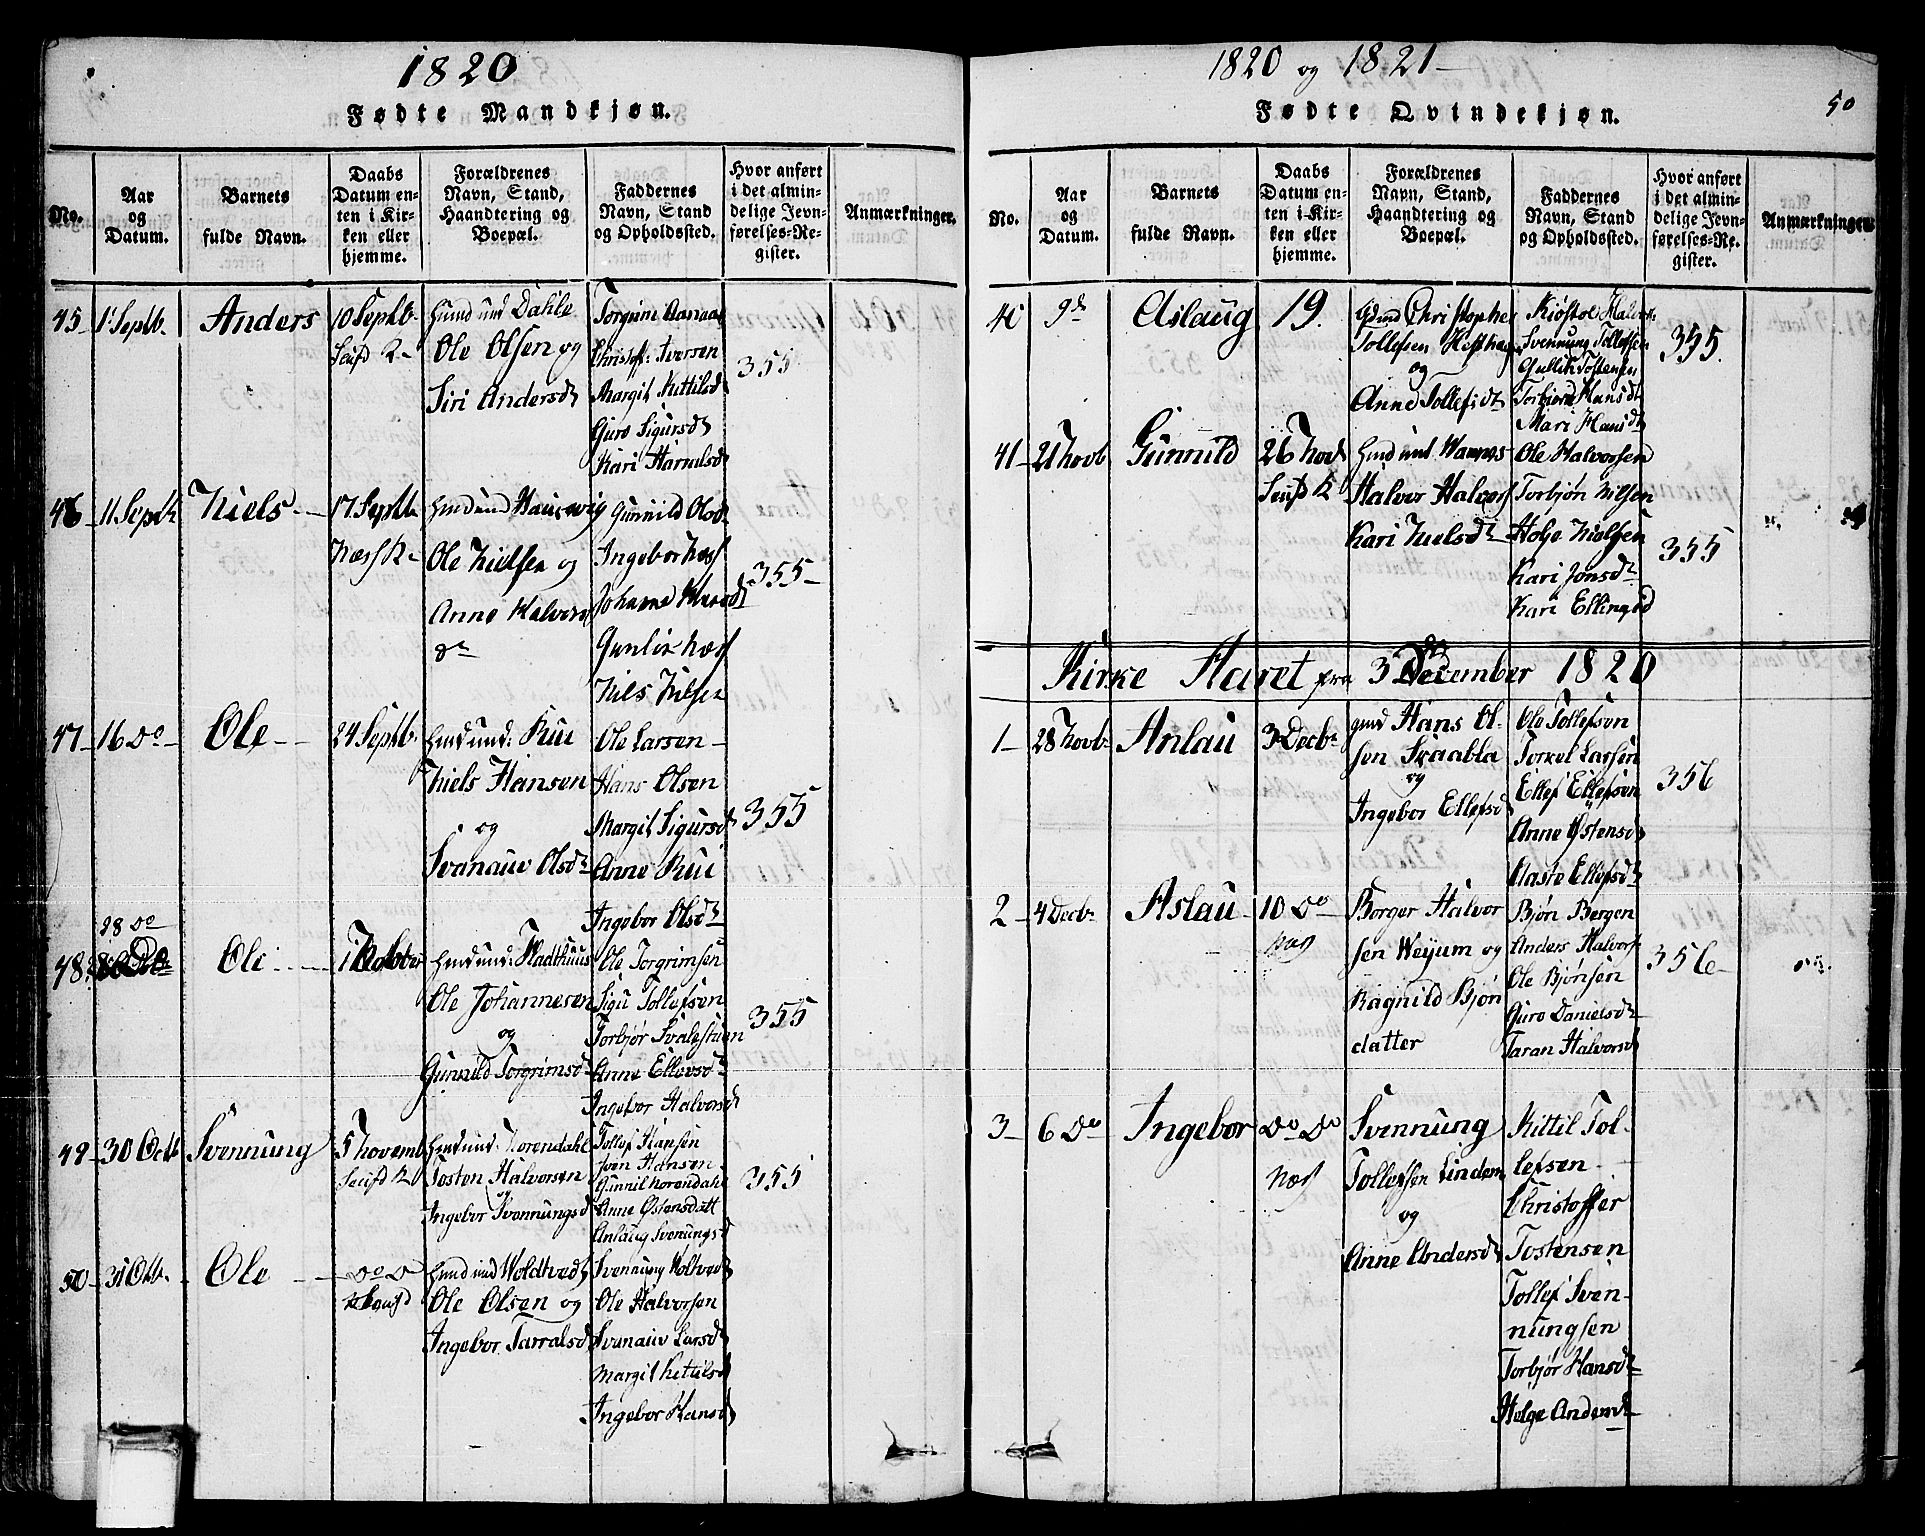 1820
Fødte Mandkjøn.
No.
Aar
og
Datum.
Barnets
fulde Navn.
Daabs
Datum en-
ten i Kir-
ken eller
hjemme.
Forældrenes
Navn, Stand,
Haandtering og
Boepæl.
Faddernes
Navn, Stand
og Opholdssted.
Hvor anført
i det almin-
delige Jevn-
førelses-Re-
gister.
Anmærkninger.
45
1 Septb.
Anders
10 Septb.
Husmd und Dahle
Ole Olsen og
Siri Andersdt
Torgrim Aanaas
Christof: Iversen
Margit Kittilsd
Guro Sigursdt
Kari Haraldsd
355
46
11 Septb
Niels
17 Septb
Næss K
Ole Nielsen og
Anne Halvors
dr
Gunnild Olsd
Ingebor Næss
Johanne
Gunlix Næss
Niels Nilsen
355
47
16 do
Ole
24 Septb.
Husmd und: Ruu
Niels Hansen
og
Svanauv Olsdr
Ole Larsen
Hans Olsen
Margit Sigursdt
Anne Ruu
Ingebor Olsdt
355
48
28 do
Ole
1 Octbr
Ole Johannesen
og
Gunnild Torgrimsd
Ole Torgrimsen
Sigu Tollefsen
Torbjør Svalestuen
Anne Ellevsdr
Ingebor Halvorsd
355
49
30 Octb
Svennung
5 Novemb
Tosten Halvorsen
og
Ingebor Svennungsd
Tollef Hansen
Sven Hansen
Gunnil Norendahl
Anne Østensdatt
Anlaug Svenungsd
355
50
31 Octb.
Ole
do do
Husmd und Woldtvedt
Ole Olsen og
Ingebor Tarralsd
Svennung Holtvedt
Ole Halvorsen
Svanauv Larsdr
Margit Kittilsd
Ingebor Hansdt
1820 og 1821
Fødte Qvindekjøn.
50
No.
Aar
og
Datum.
Barnets
fulde Navn.
Daabs
Datum en-
ten i Kir-
ken eller
hjemme.
Forældrenes
Navn, Stand,
Haandtering og
Boepæl.
Faddernes
Navn, Stand
og Opholdssted.
Hvor anført
i det almin-
delige Jevn-
førelses-Re-
gister.
Anmærkninger
40
9de
Aslaug
19.
Gmd Christopher
Tollefsen
og
Anne Tollefsdt
Kiøstol Halvors
Svennung Tollefsen
Gullik Tostensen
Torbjørn Hansdt
Mari Hansdt
355
41
21 Novb
Gunnild
26 Nov
Halvor Halvors
Kari Nielsdr
Ole Halvorsen
Torbjøn Nilsen
Holje Nielsen
Kari Jonsdr
Kari Ellingsd
355
Kirke Aaret fra 3 December 1820
1
28 Novbr
Anlau
3 Decbr
gmd Hans Ol-
sen Skaabla
og
Ingebor Ellefsd
Ole Tollefsen
Torkel Larsen
Ellef Ellefsen
Anne Østensd
Aaste Ellefsdt
356
2
4 Decbr
Aslau
10 do
Næs
Borger Halvor
sen Weyum og
Ragnild Bjøn
datter
Bjøn Bergen
Anders Halvors
Ole Bjønsen
Guro Danielsdr
Taran Halvorsd
356
3
6 do
Ingebor
do do
Næs
Svennung
Tollefsen Lindem
og
Anne Andersdt
Kittil Tol-
lefsen
Christoffer
Tostensen
Tollef Sven-
nungsen
Torbjør Hansdr
Helge Andersdt